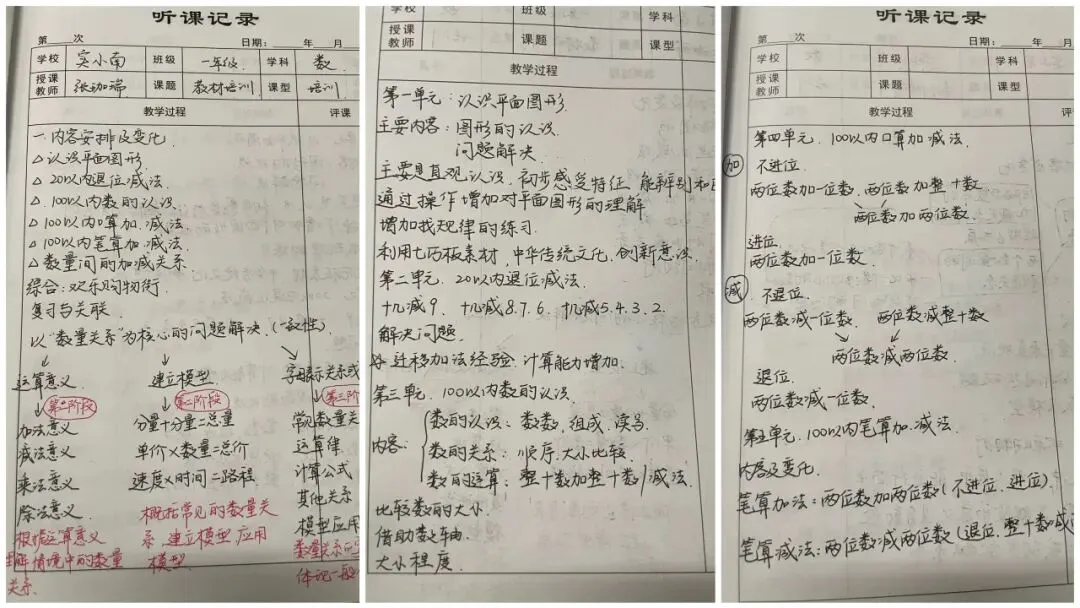 听课记录
第 次 日期： 年 月
学校 实小南 班级 一年级 学科 数
授课教师 张 瑞 课题 教材培训 课型 培训
教学过程 评课
一.内容安排及变化
△认识平面图形
△ 20以内退位减法.
△ 100以内数的认识
△100以内口算加.减法
△ 100以内笔算加.减法
△ 数量间的加减关系
综合:欢乐购物街.
复习与关联
以“数量关系”为核心的问题解决.(一致性)
运算意义 建立模型 字母表示关系或
第一阶段 第二阶段 第三阶段
加法意义 分量+分量=总量 常见数量关
减法意义 单价×数量=总价 运算律
乘法意义 速度×时间=路程. 计算公式
除法意义 其他关系
概括常见的数量关 模型应用
根据运算意义 系,建立模型,应用 数量关系的
理解情境中的数量 模型 体现一般
关系.
听课记录
学校 班级 学科
授课教师 课题 课型
教学过程
第一单元:认识平面图形.
主要内容:图形的认识.
问题解决.
主要是直观认识,初步感受特征,能辨别和
通过操作增加对平面图形的理解
增加找规律的练习.
利用七巧板素材,中华传统文化,创新意识.
第二单元.20以内退位减法.
十几减9. 十几减8.7.6. 十几减5.4.3.2.
解决问题.
迁移加法经验.计算能力增加.
第三单元.100以内数的认识.
内容:
数的认识:数数,组成,读写.
数的关系:顺序,大小比较.
数的运算:整十数加整十数/减法.
比较数的大小.
借助数轴.
大小程度.
听课记录
第 次 日期： 年 月
学校 班级 学科
授课教师 课题 课型
教学过程 评
第四单元.100以内口算加.减法.
加 不进位.
两位数加一位数.两位数加整十数
两位数加两位数.
进位.
两位数加一位数.
减 不退位.
两位数减一位数. 两位数减整十数
两位数减两位数.
退位.
两位数减一位数.
第五单元.100以内笔算加.减法.
内容及变化.
笔算加法:两位数加两位数(不进位.进位).
笔算减法:两位数减两位数(退位.整十数减